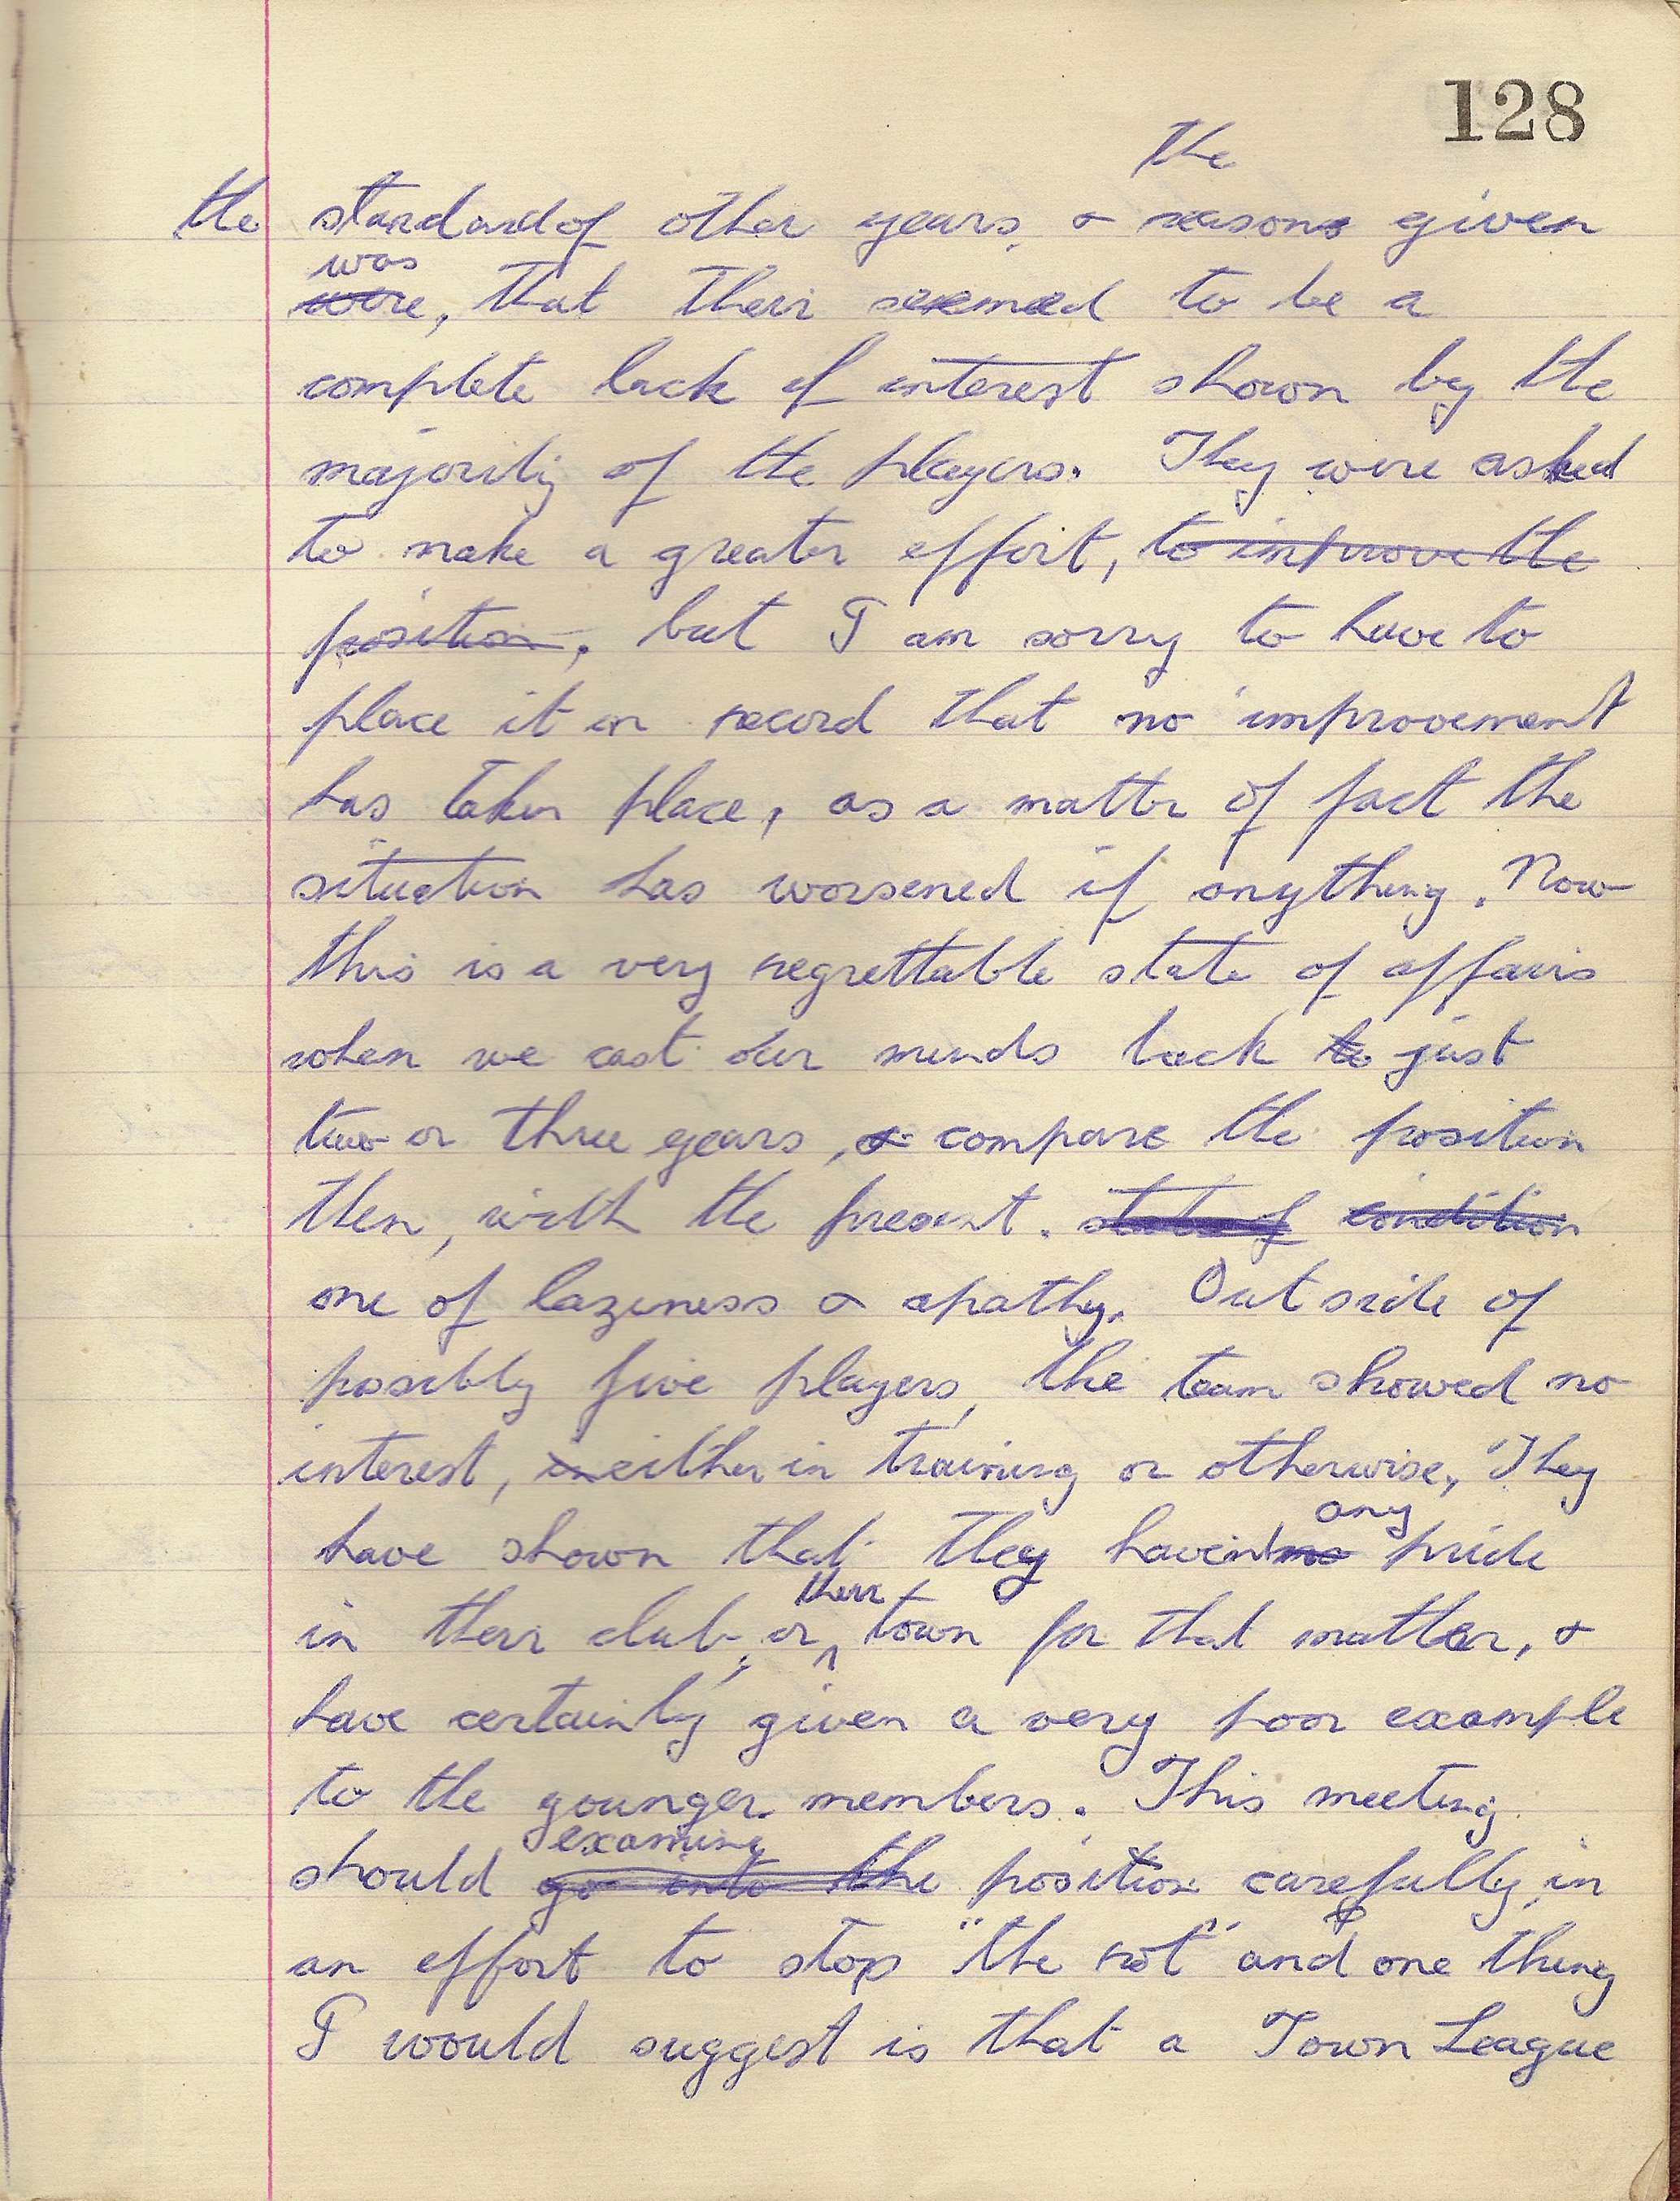 128
the
the standard of other years, & reasons given
was
were, that their seemed to be a
complete lack of interest shown by the
majority of the players. They were asked
to make a greater effort, to improve the
position, but I am sorry to have to
place it on record that no improvement
has taken place, as a matter of fact the
situation has worsened if anything. Now
this is a very regrettable state of affairs
when we cast our minds back to just
two or three years, & compare the position
then, with the present. state of condition
one of laziness & apathy. Outside of
possibly five players, the team showed no
interest, in either in training or otherwise. They
any
have shown that they haven't no pride
their
in their club, or ^ town for that matter, &
have certainly given a very poor example
to the younger members. This meeting
examine
should go into the position carefully, in
an effort to stop "the rot" and one thing
I would suggest is that a Town League